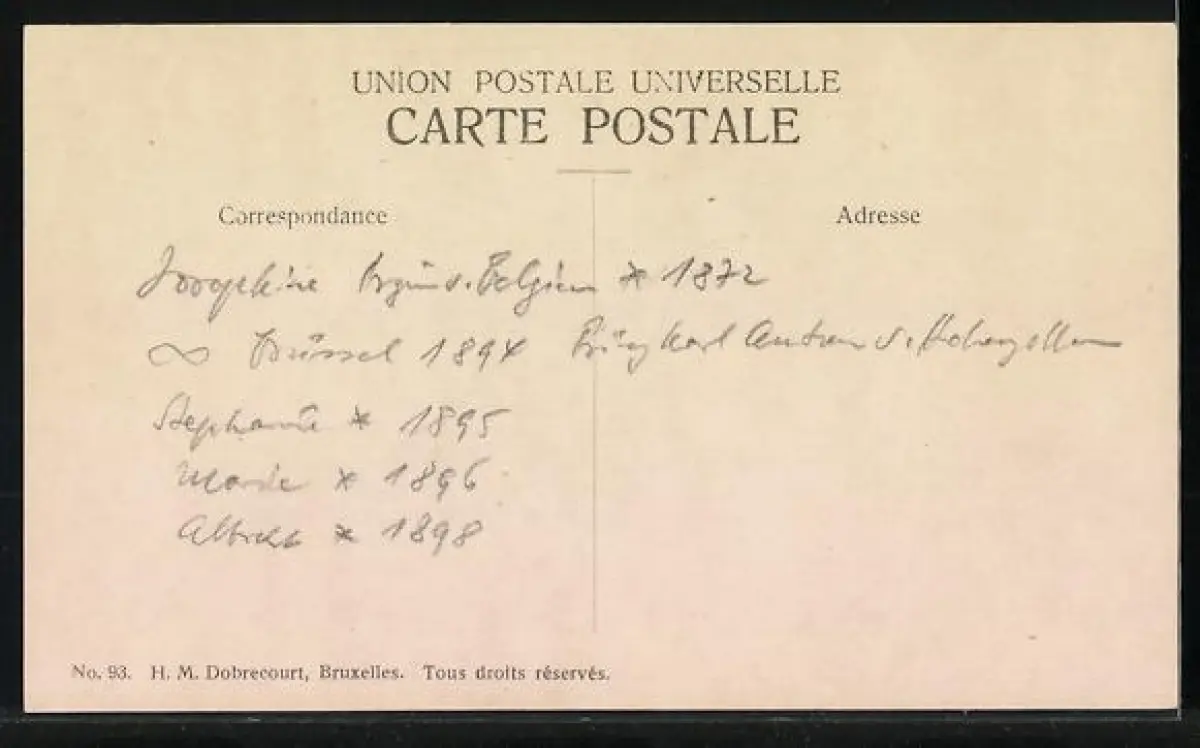 UNION POSTALE UNIVERSELLE
CARTE POSTALE
Correspondance
Adresse
Josephine Przin v. Belgien * 1872
∞ Brüssel 1894 Prinz Karl Anton v. Hohenzollern
Stephanie * 1895
Marie * 1896
Albrecht * 1898
No. 93. H. M. Dobrecourt, Bruxelles. Tous droits réservés.